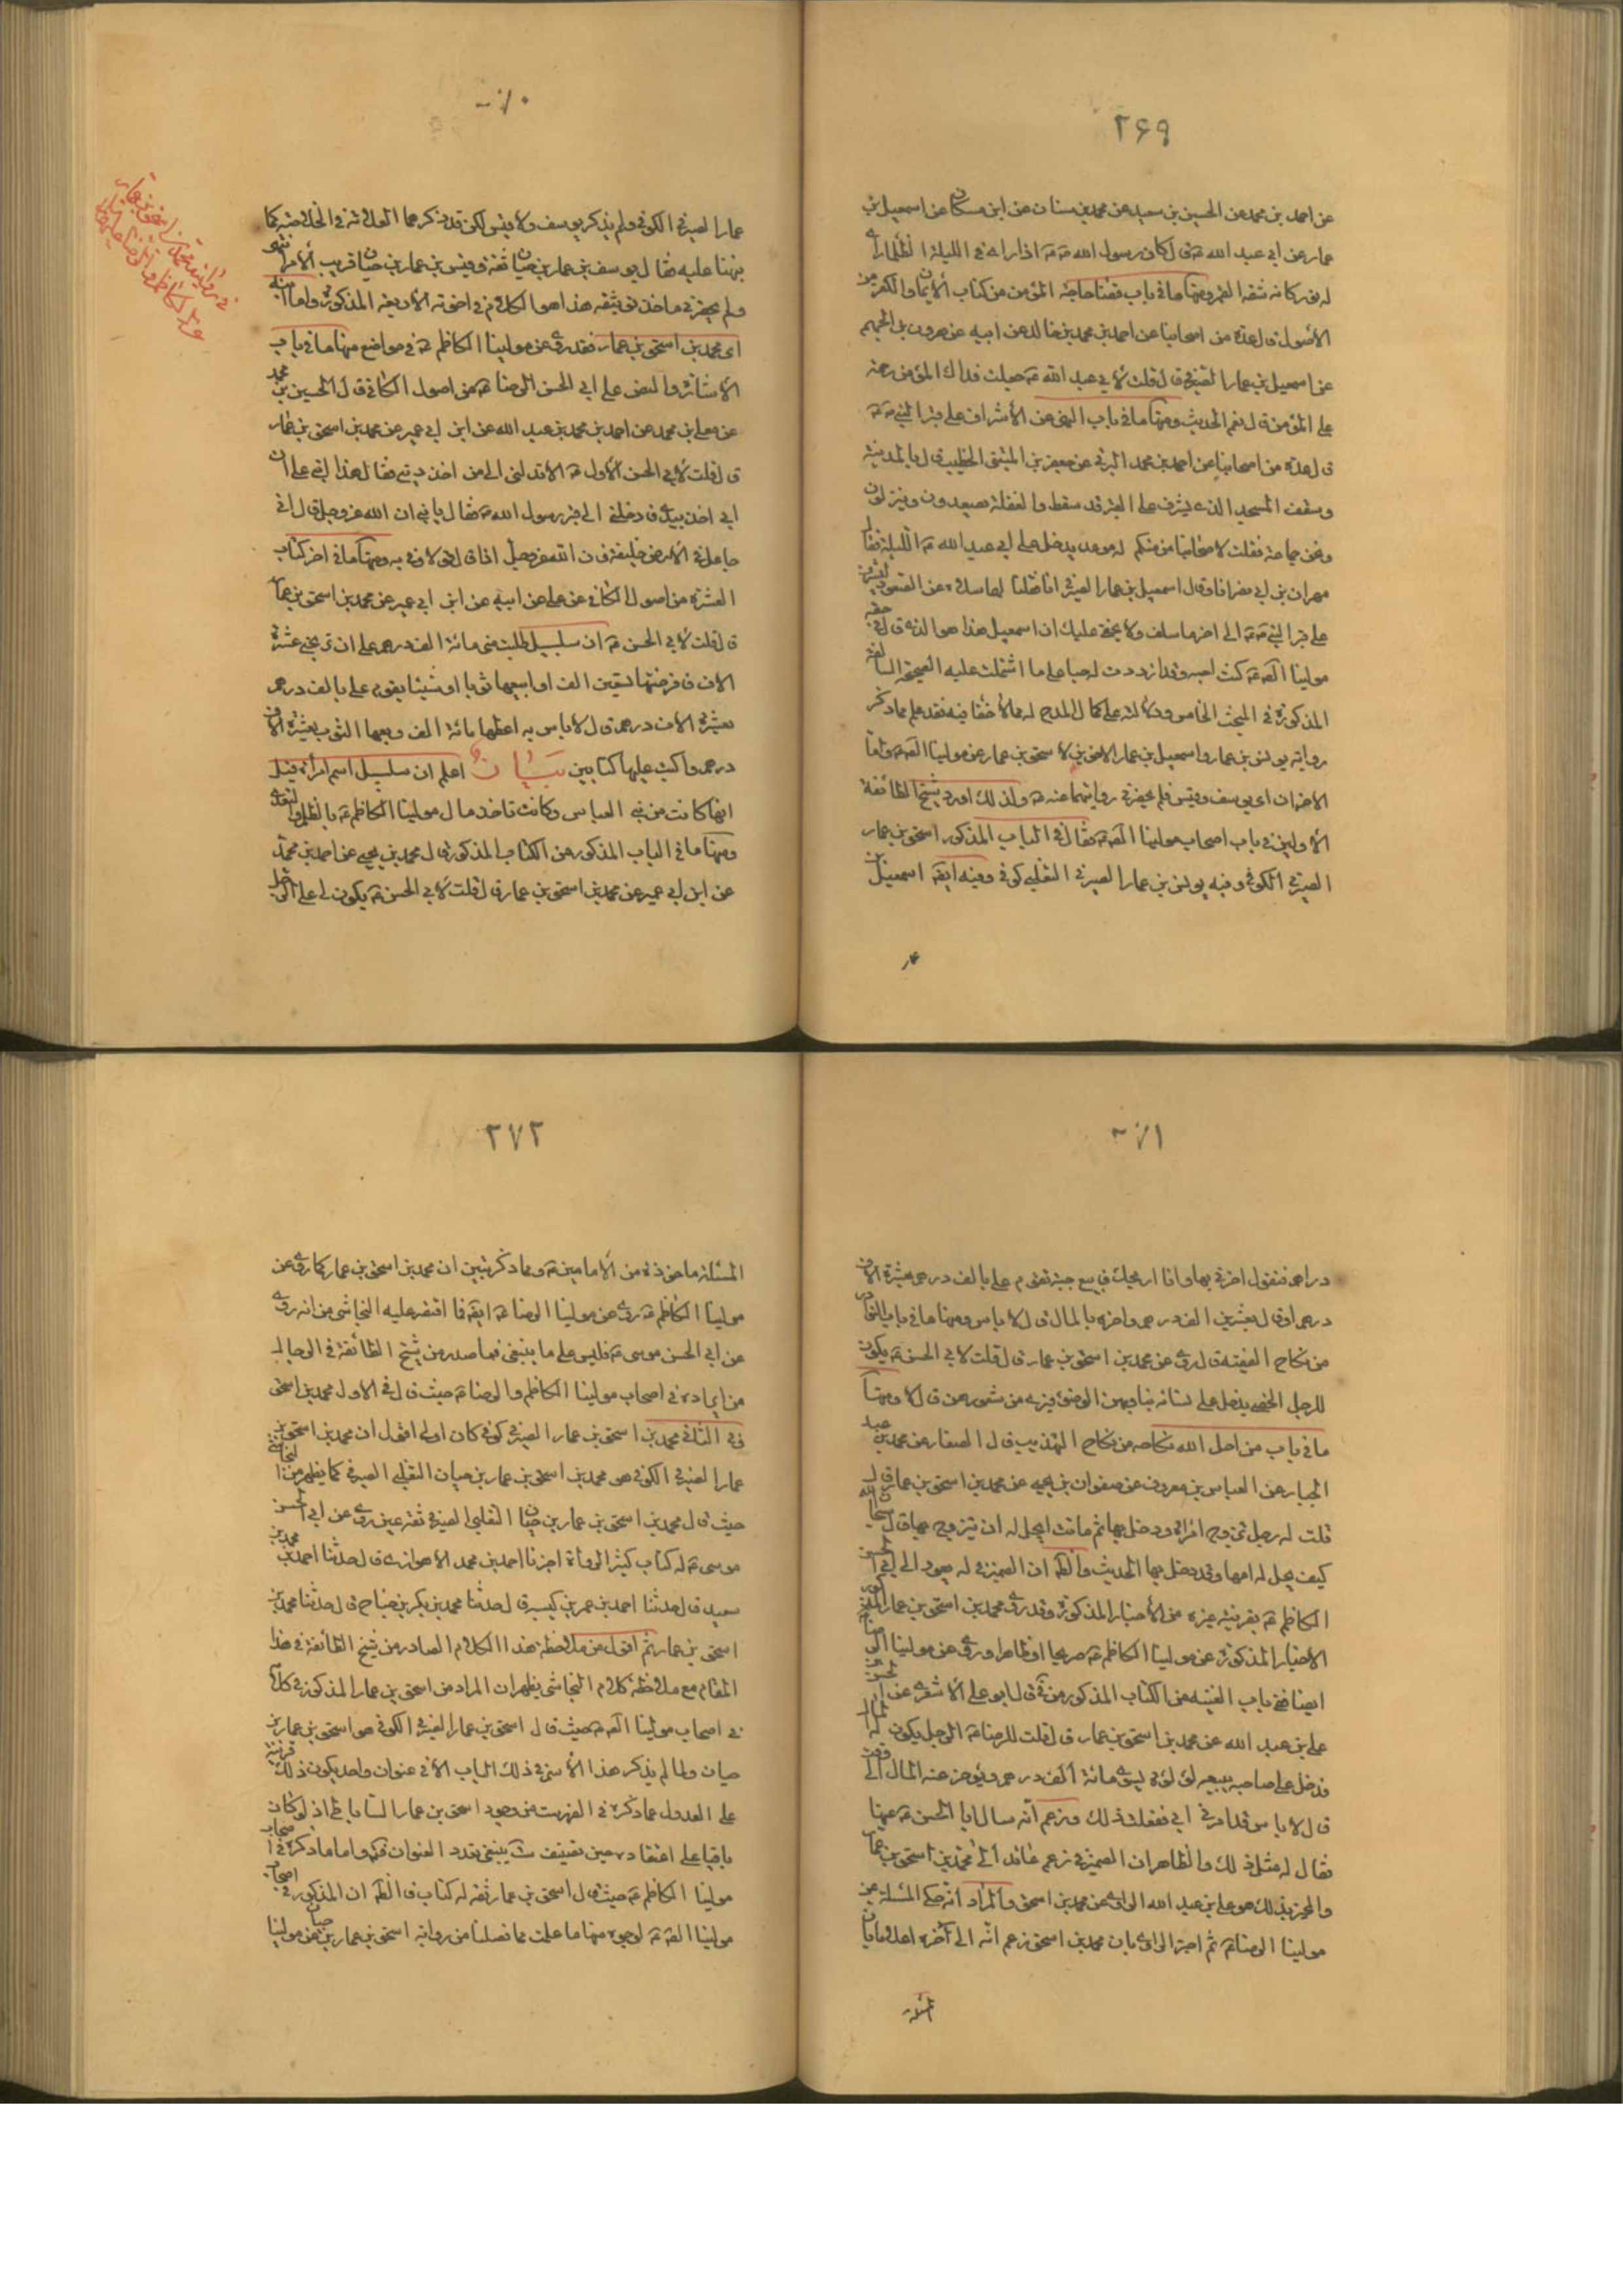 ٢۶٩
عن احمد بن محمد عن الحسين بن سعيد عن محمد بن سنان عن ابن مسكان عن اسمعيل بن
عمار عن ابي عبد الله ع قال كان رسول الله ص اذا راى في الليلة الظلماء
له نور كانه شقة القمر ومنها ما في باب قضاء حاجة المؤمن من كتاب الايمان والكفر من
الاصول قال عدة من اصحابنا عن احمد بن محمد بن خالد عن ابيه عن هرون بن الجهم
عن اسمعيل بن عمار الصيرفي قال قلت لابي عبد الله ع جعلت فداك المؤمن رحمة
على المؤمن قال نعم الحديث ومنها ما في باب النهي عن الاشراف على قبر النبي ص
قال عدة من اصحابنا عن احمد بن محمد البرقي عن جعفر بن المثنى الخطيب قال كنت بالمدينة
وسقف المسجد الذي يشرف على القبر قد سقط والفعلة يصعدون وينزلون
ونحن جماعة فقلت لاصحابنا من منكم له موعد يدخل على ابي عبد الله ع الليلة فقال
مهران بن ابي نصر انا وقال اسمعيل بن عمار الصيرفي انا فقلنا لهما سلاه عن الصعود لنشرف
على قبر النبي ص الى اخر ما سلف ولا يخفى عليك ان اسمعيل هذا هو الذي قال في حقه
مولينا الصادق ع كنت احبه وقد ازددت له حبا على ما اشتملت عليه الصحيحة السالفة
المذكورة في المبحث الخامس ودلالته على كمال المدح له مما لا خفاء فيه فقد علم مما ذكر
رواية يونس بن عمار واسمعيل بن عمار الاخوين لاسحق بن عمار عن مولينا الصادق ع واما
الاخران اى يوسف وقيس فلم يحضرني روايتهما عنه ع ولذلك اورد شيخ الطائفة
الاولين في باب اصحاب مولينا الصادق ع فقال في الباب المذكور اسحق بن عمار
الصيرفي الكوفي وفيه يونس بن عمار الصيرفي التغلبي كوفي وفيه ايضا اسمعيل بن
عمار
٢٧٠
عمار الصيرفي الكوفي ولم يذكر يوسف ولا قيس لكن قد ذكرهما العلامة في الخلاصة كما
نبهنا عليه فقال يوسف بن عمار بن حيان ثقة وقيس بن عمار بن حيان قريب الامر
ولم يحضرني ماخذ توثيقه هذا هو الكلام في اخوته الاربعة المذكورة واما ابنه
اى محمد بن اسحق بن عمار فقد روى عن مولينا الكاظم ع في مواضع منها ما في باب
الاشارة والنص على ابي الحسن الرضا ع من اصول الكافي قال الحسين بن محمد
عن معلى بن محمد عن احمد بن محمد بن عبد الله عن ابن ابي عمير عن محمد بن اسحق بن عمار
قال قلت لابي الحسن الاول ع الا تدلني الى من اخذ ديني فقال هذا ابني على ان
ابي اخذ بيدي فادخلني الى قبر رسول الله ص فقال يا بني ان الله عز وجل قال اني
جاعل في الارض خليفة وان الله عز وجل اذا قال قولا وفى به ومنها ما في اخر كتاب
العشرة من اصول الكافي عن علي عن ابيه عن ابن ابي عمير عن محمد بن اسحق بن عمار
قال قلت لابي الحسن ع ان سلسبيل طلبت مني مائة الف درهم على ان تربحني عشرة
الاف فاقرضتها تسعين الف وابيعها ثوبا او شيئا يقوم علي بالف درهم
بعشرة الاف درهم قال لا باس به اعطها مائة الف وبعها الثوب بعشرة الاف
درهم واكتب عليها كتابين بيان اعلم ان سلسبيل اسم امراة قيل
انها كانت من بني العباس وكانت تاخذ مال مولينا الكاظم ع بالظلم والتعدي
ومنها ما في الباب المذكور من الكتاب المذكور قال محمد بن يحيى عن احمد بن محمد
عن ابن ابي عمير عن محمد بن اسحق بن عمار قال قلت لابي الحسن ع يكون لي على الرجل
٢٧١
دراهم فيقول اخرني بها وانا اربحك فابيعه جبة تقوم علي بالف درهم بعشرة الاف
درهم او قال بعشرين الف درهم واخره بالمال قال لا باس ومنها ما في باب النوادر
من نكاح الفقيه قال روى عن محمد بن اسحق بن عمار قال قلت لابي الحسن ع يكون
للرجل الخصي يدخل على نسائه يناولهن الوضوء فيرى من شعورهن قال لا ومنها
ما في باب من احل الله نكاحه من نكاح التهذيب قال الصفار عن محمد بن عبد
الجبار عن العباس بن معروف عن صفوان بن يحيى عن محمد بن اسحق بن عمار قال
قلت له رجل تزوج امراة ودخل بها ثم ماتت ايحل له ان يتزوج امها قال سبحان الله
كيف يحل له امها وقد دخل بها الحديث والظاهر ان الضمير في له يعود الى ابي الحسن
الكاظم ع بقرينة غيره من الاخبار المذكورة وقد روى محمد بن اسحق بن عمار
الاخبار المذكورة عن مولينا الكاظم ع صريحا او ظاهرا وروى عن مولينا الرضا
ايضا ففي باب العينة من الكتاب المذكور قال ابو علي الاشعري عن الحسن بن
علي بن عبد الله عن محمد بن اسحق بن عمار قال قلت للرضا ع الرجل يكون له المال
فدخل على صاحبه يبيعه لؤلؤة تسوى مائة الف درهم ويؤخر عنه المال الى وقت
قال لا باس قد امرني ابي ففعلت ذلك وزعم انه سال ابا الحسن ع عنها
فقال له مثل ذلك والظاهر ان الضمير في زعم عائد الى محمد بن اسحق بن عمار
والمخبر بذلك هو علي بن عبد الله الراوي عن محمد بن اسحق والمراد انه حكى المسئلة عن
مولينا الرضا ع ثم اخبر الراوي بان محمد بن اسحق زعم انه الى اخره
المسئلة
٢٧٢
المسئلة ماخوذة من الامامين ع ومما ذكر تبين ان محمد بن اسحق بن عمار كما روى عن
مولينا الكاظم ع روى عن مولينا الرضا ع ايضا فما اقتصر عليه النجاشي من انه روى
عن ابي الحسن موسى ع فليس على ما ينبغي فما صدر من شيخ الطائفة في الرجال
من ايراده في اصحاب مولينا الكاظم والرضا ع حيث قال في الاول محمد بن اسحق
وفي الثاني محمد بن اسحق بن عمار الصيرفي كوفي كان اولى اقول ان محمد بن اسحق بن
عمار الصيرفي الكوفي هو محمد بن اسحق بن عمار بن حيان التغلبي الصيرفي كما يظهر من النجاشي
حيث قال محمد بن اسحق بن عمار بن حيان التغلبي الصيرفي ثقة عين روى عن ابي الحسن
موسى ع له كتاب كثير الرواة اخبرنا احمد بن محمد الاهوازي قال حدثنا احمد بن محمد بن
سعيد قال حدثنا احمد بن عمر بن كيسبة قال حدثنا محمد بن بكر بن جناح قال حدثنا محمد بن
اسحق بن عمار ثم اقول من ملاحظة هذا الكلام الصادر من شيخ الطائفة في هذا
المقام مع ملاحظة كلام النجاشي يظهر ان المراد من اسحق بن عمار المذكور في كلامه
في اصحاب مولينا الصادق ع حيث قال اسحق بن عمار الصيرفي الكوفي هو اسحق بن عمار بن
حيان ولما لم يذكر هذا الاسم في ذلك الباب الا في عنوان واحد يكون ذلك قرينة
على العدول عما ذكره في الفهرست من وجود اسحق بن عمار الساباطي اذ لو كان
باقيا على اعتقاده حين تصنيف ينبغي تعدد العنوان واما ما ذكره في اصحاب
مولينا الكاظم ع حيث قال اسحق بن عمار ثقة له كتاب فالظاهر ان المذكور في اصحاب
مولينا الصادق ع لوجوه منها ما علمت مما فصلنا من رواية اسحق بن عمار بن حيان عن مولينا